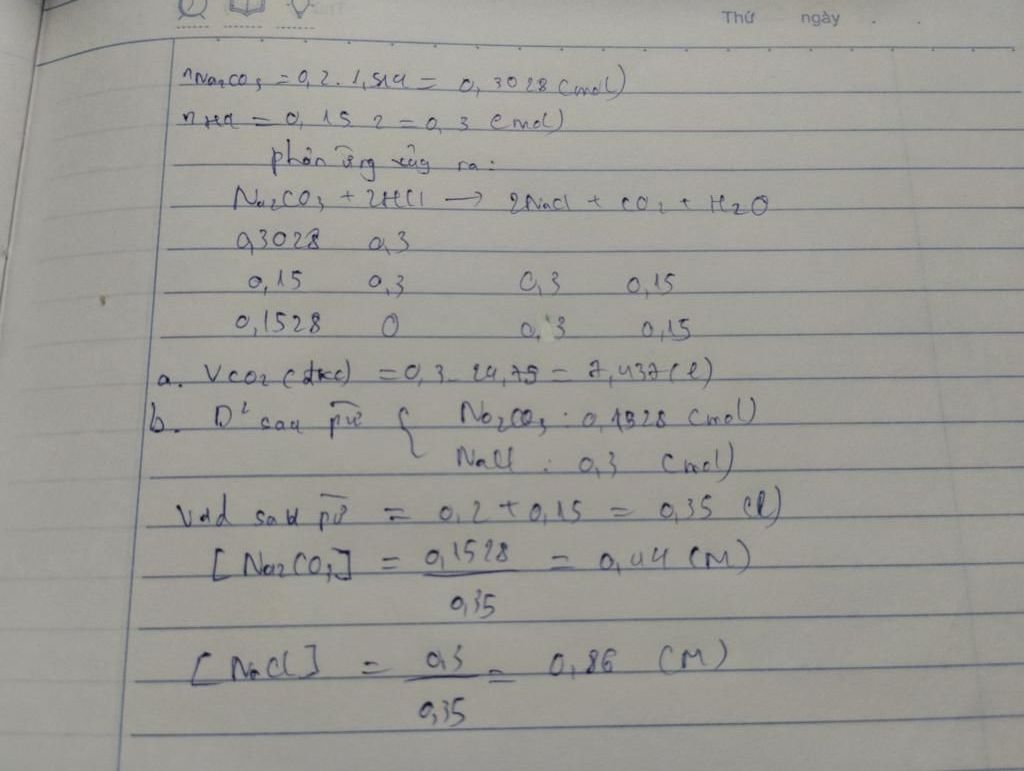 Thứ ngày . .
nNa₂CO₃ = 0,2 . 1,514 = 0,3028 (mol)
nHCl = 0,15 2 = 0,3 (mol)
phản ứng xảy ra:
Na₂CO₃ + 2HCl → 2NaCl + CO₂ + H₂O
0,3028 0,3
0,15 0,3 0,3 0,15
0,1528 0 0,3 0,15
a. VCO₂ (đkc) = 0,3 . 24,79 = 7,437 (l)
b. D² sau pứ { Na₂CO₃ : 0,1528 (mol)
NaCl : 0,3 (mol)
Vdd sau pứ = 0,2 + 0,15 = 0,35 (l)
[Na₂CO₃] = 0,1528 / 0,35 = 0,44 (M)
[NaCl] = 0,3 / 0,35 = 0,86 (M)